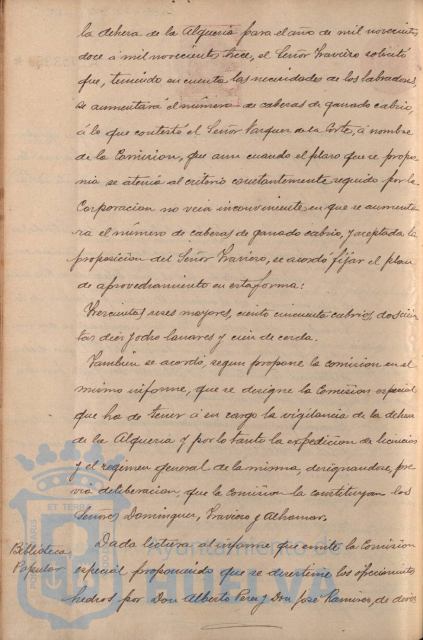 la dehesa de la Alqueria para el año de mil novecientos
doce á mil novecientos trece, el Señor Travieso solicitó
que, teniendo en cuenta las necesidades de los labradores,
se aumentará el número de cabezas de ganado cabrio,
á lo que contestó el Señor Vazquez de la Corte, á nombre
de la Comision, que aun cuando el plazo que se propo-
nia se atenia al criterio constantemente seguido por la
Corporacion no veia inconveniente en que se aumenta-
ra el número de cabezas de ganado cabrio, y aceptada la
proposicion del Señor Travieso, se acordó fijar el plan
de aprovechamiento en esta forma:
Trescientas reses mayores, ciento cincuenta cabrios, doscien-
tas diez y ocho lanares y cien de cerda.
Tambien se acordó, segun propone la comision en el
mismo informe, que se designe la Comision especial
que ha de tener á su cargo la vigilancia de la dehesa
de la Alqueria y por lo tanto la expedicion de licencias
y el regimen general de la misma, designandose, pre-
via deliberacion, que la comision la constituyan los
Señores Dominguez, Travieso y Alhamar.
Biblioteca
Popular
Dada lectura al informe que emite la Comision
especial proponiendo que se desestime los ofrecimientos
hechos por Don Alberto Perez y Don José Ramirez, de